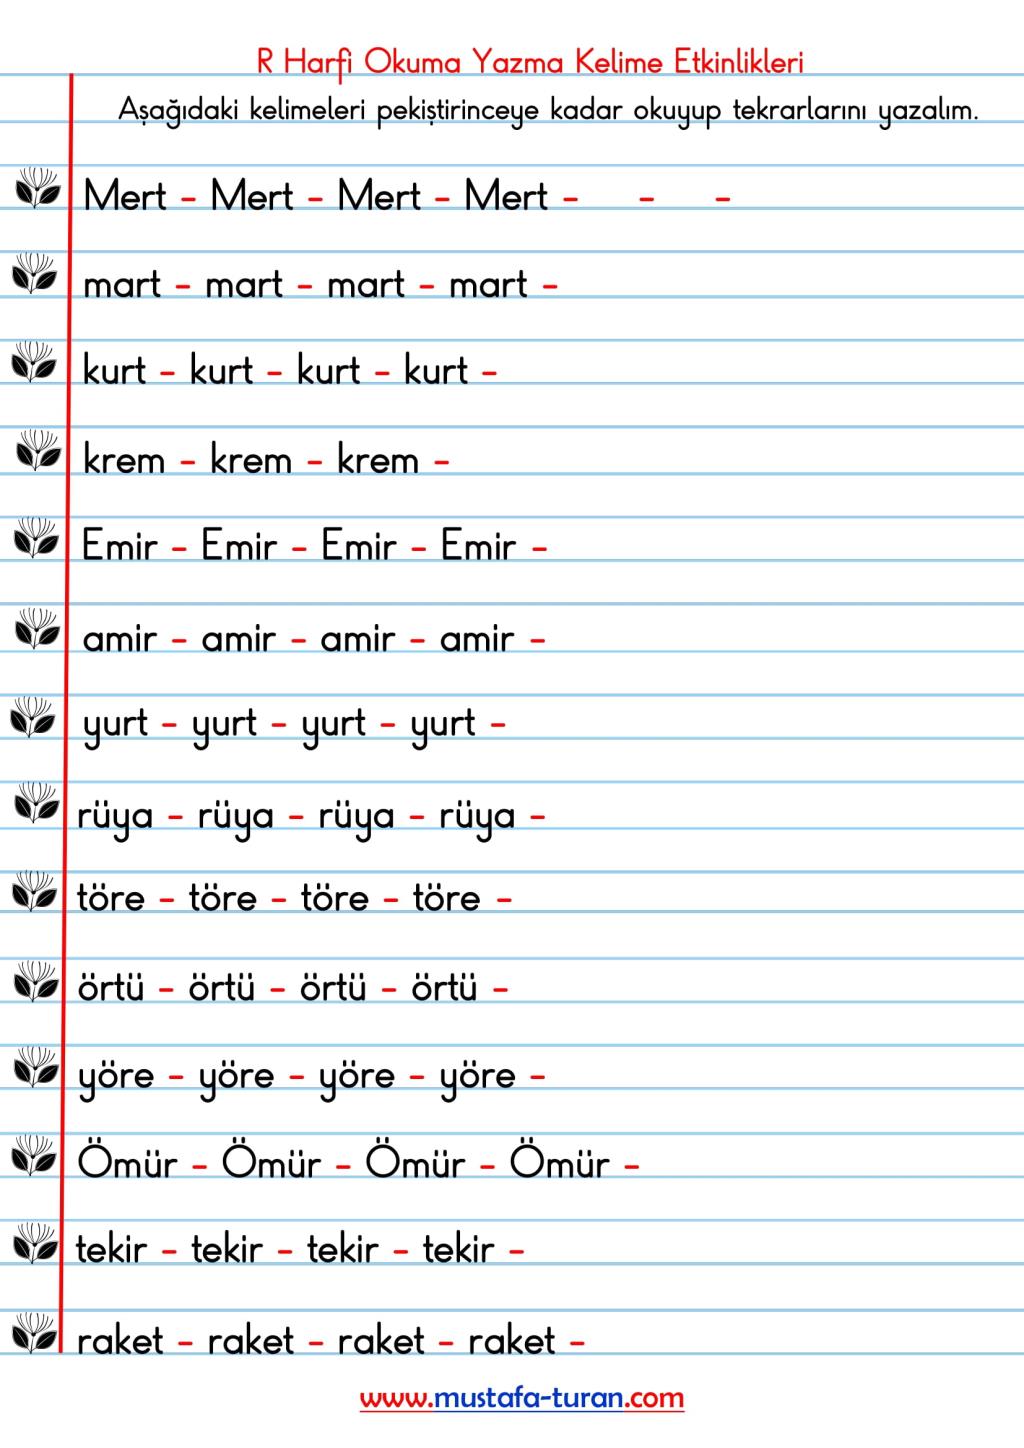 R Harfi Okuma Yazma Kelime Etkinlikleri
Aşağıdaki kelimeleri pekiştirinceye kadar okuyup tekrarlarını yazalım.
Mert - Mert - Mert - Mert - - -
mart - mart - mart - mart -
kurt - kurt - kurt - kurt -
krem - krem - krem -
Emir - Emir - Emir - Emir -
amir - amir - amir - amir -
yurt - yurt - yurt - yurt -
rüya - rüya - rüya - rüya -
töre - töre - töre - töre -
örtü - örtü - örtü - örtü -
yöre - yöre - yöre - yöre -
Ömür - Ömür - Ömür - Ömür -
tekir - tekir - tekir - tekir -
raket - raket - raket - raket -
www.mustafa-turan.com